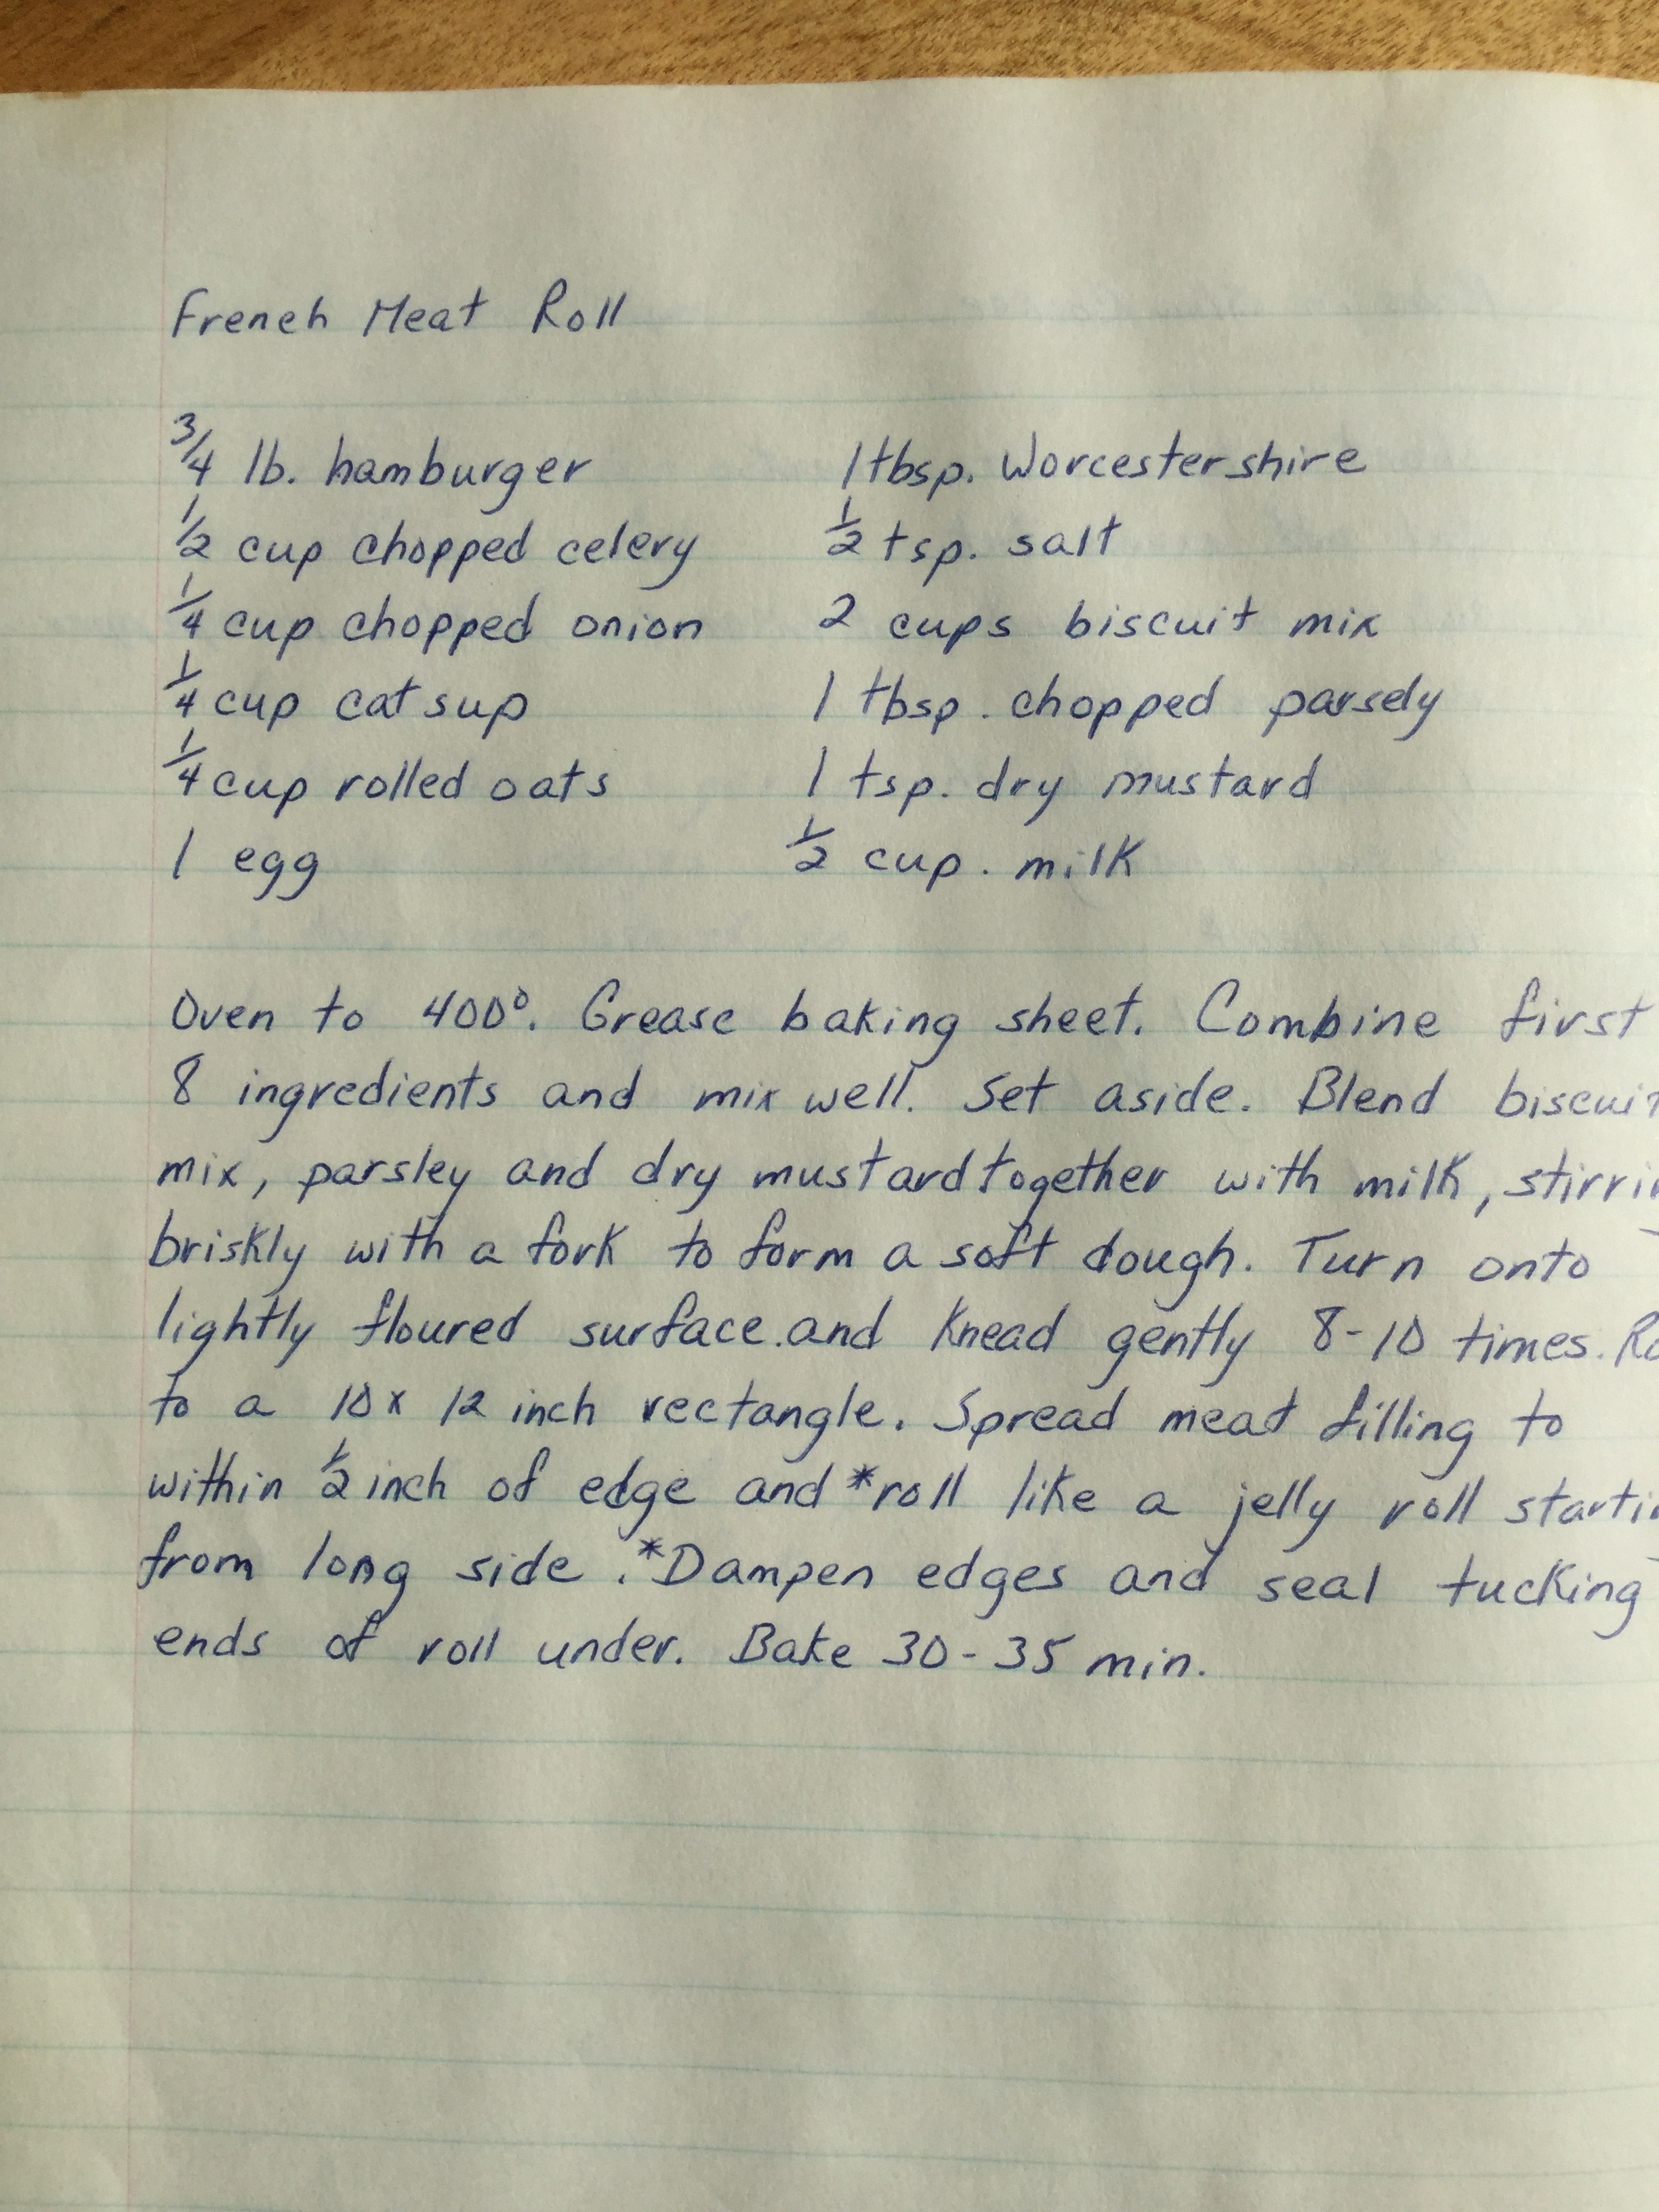 French Meat Roll
3/4 lb. hamburger
1/2 cup chopped celery
1/4 cup chopped onion
1/4 cup catsup
1/4 cup rolled oats
1 egg
1 tbsp. Worcestershire
1/2 tsp. salt
2 cups biscuit mix
1 tbsp. chopped parsely
1 tsp. dry mustard
1/2 cup. milk
Oven to 400°. Grease baking sheet. Combine first
8 ingredients and mix well. Set aside. Blend biscuit
mix, parsley and dry mustard together with milk,
briskly with a fork to form a soft dough. Turn onto
lightly floured surface.and knead gently 8-10 times.
to a 10 x 12 inch rectangle. Spread meat filling to
within 1/2 inch of edge and *roll like a jelly roll
from long side. *Dampen edges and seal tucking
ends of roll under. Bake 30-35 min.